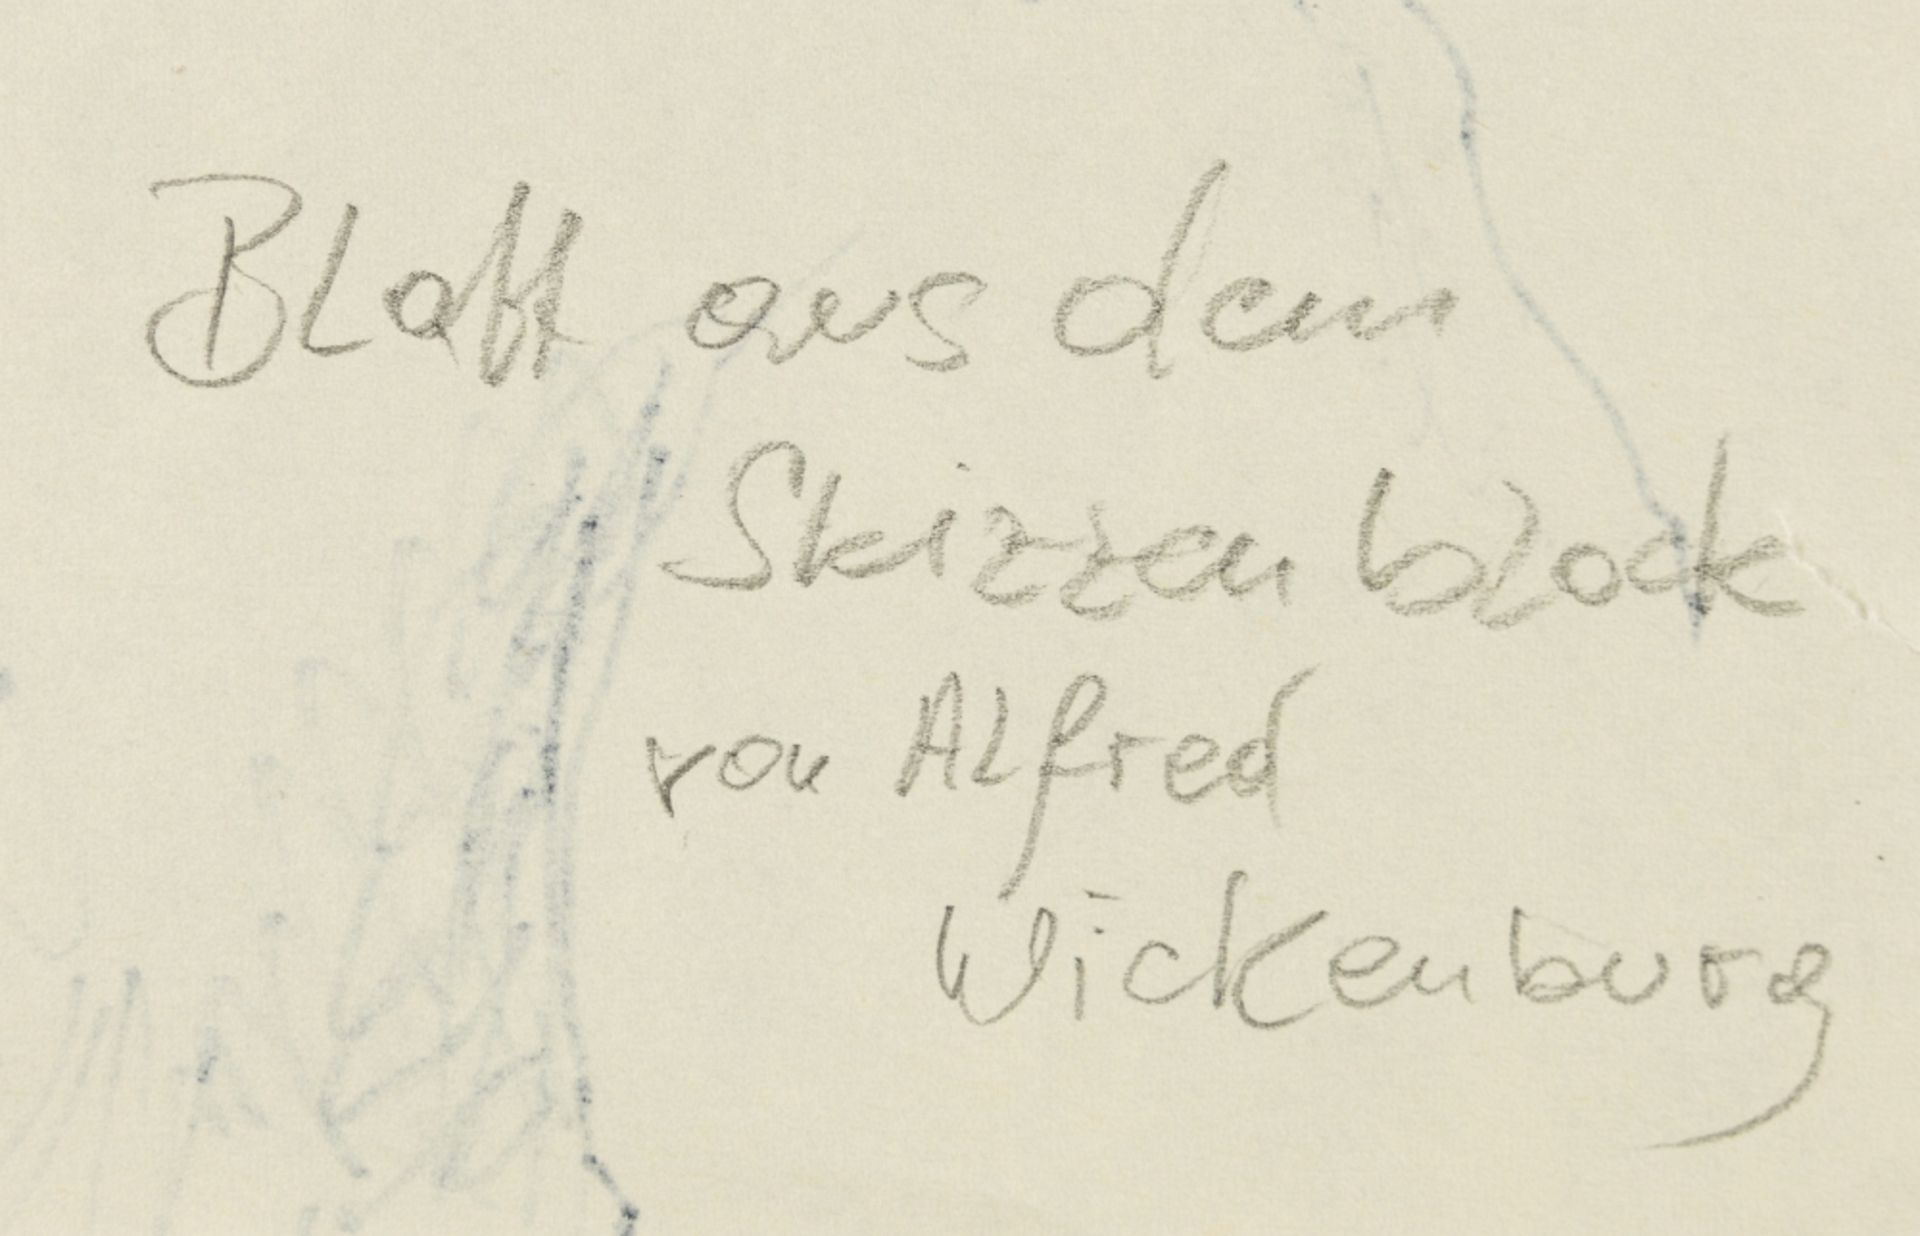 Blatt aus dem
Skizzenblock
von Alfred
Wickenburg